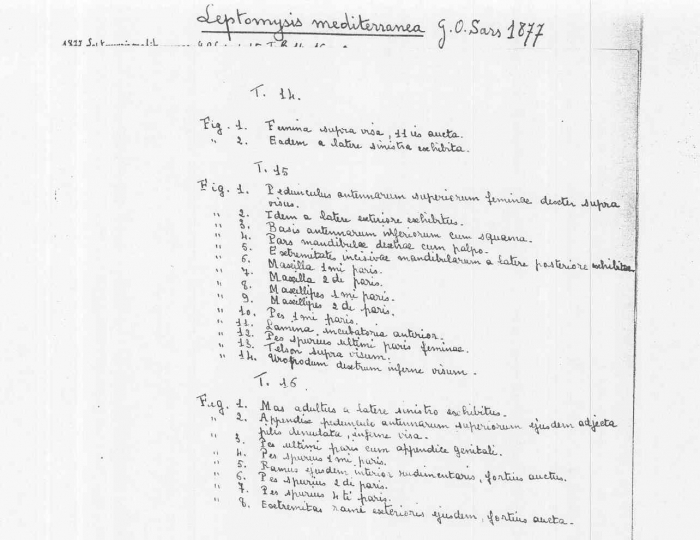 Leptomysis mediterranea G.O. Sars 1877
1877
T. 14.
Fig. 1. Femina supra visa, 11 ies aucta.
" 2. Eadem a latere sinistra exhibita.
T. 15
Fig. 1. Pedunculus antennarum superiorum feminae dexter supra
visus.
" 2. Idem a latere exteriore exhibitus.
" 3. Basis antennarum inferiorum cum squama.
" 4. Pars mandibulae dextrae cum palpo.
" 5. Extremitates incisivae mandibularum a latere posteriore exhibitae
" 6. Maxilla 1mi paris.
" 7. Maxilla 2 di paris.
" 8. Maxellipes 1mi paris.
" 9. Maxellipes 2 di paris.
" 10. Pes 1mi paris.
" 11. Lamina incubatoria anterior.
" 12. Pes spurius ultimi paris feminae.
" 13. Telson supra visum.
" 14. Uropodum dextrum inferne visum.
T. 16
Fig. 1. Mas adultus a latere sinistro exhibitus.
" 2. Appendix pedunculo antennarum superiorum ejusdem adjecta
pilis denudata, inferne visa.
" 3. Pes ultimi paris cum appendice genitali.
" 4. Pes spurius 1mi paris.
" 5. Ramus ejusdem interior rudimentaris, fortius auctus.
" 6. Pes spurius 2 di paris.
" 7. Pes spurius 4 ti paris.
" 8. Extremitas rami exterioris ejusdem, fortius aucta.